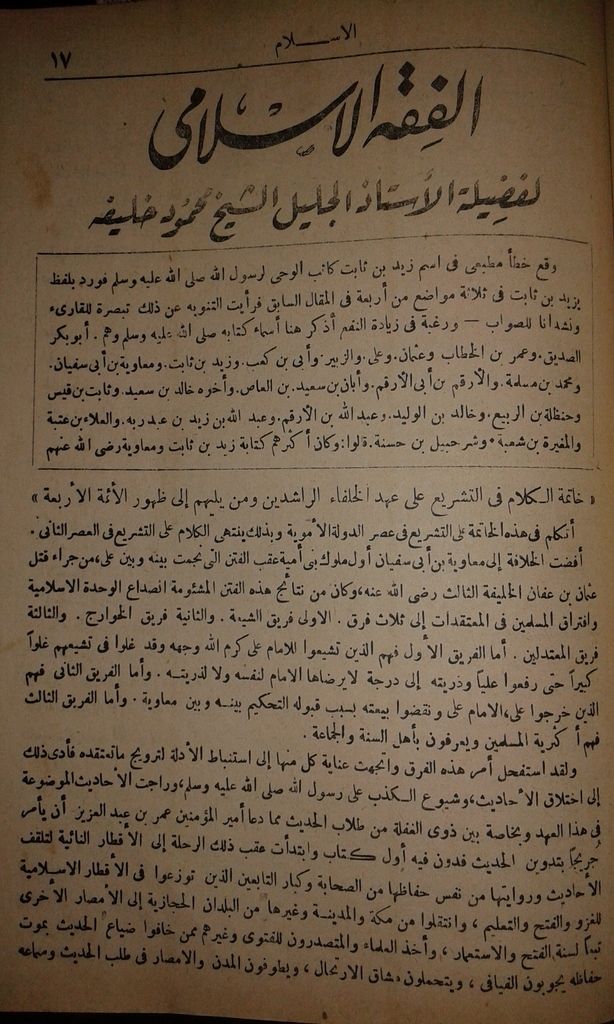 الاســـلام
١٧
الفقه الاسلامى
لفضيلة الأستاذ الجليل الشيخ محمود خليفه
وقع خطأ مطبعى فى اسم زيد بن ثابت كاتب الوحى لرسول الله صلى الله عليه وسلم فورد بلفظ
يزيد بن ثابت فى ثلاثة مواضع من أربعة فى المقال السابق فرأيت التنويه عن ذلك تبصرة للقارىء
ونشدانا للصواب — ورغبة فى زيادة النفع أذكر هنا أسماء كتابه صلى الله عليه وسلم وهم . أبو بكر
الصديق . وعمر بن الخطاب وعثمان . وعلى . والزبير . وأبى بن كعب . وزيد بن ثابت . ومعاوية بن أبى سفيان .
ومحمد بن مسلمة . والأرقم بن أبى الأرقم . وأبان بن سعيد . بن العاص . وأخوه خالد بن سعيد . وثابت بن قيس
وحنظلة بن الربيع . وخالد بن الوليد . وعبد الله بن الأرقم . وعبد الله بن زيد بن عبد ربه . والعلاء بن عتبة
والمغيرة بن شعبة . وشرحبيل بن حسنة . قالوا : وكان أكثرهم كتابة زيد بن ثابت ومعاوية رضى الله عنهم
« خاتمة الكلام فى التشريع على عهد الخلفاء الراشدين ومن يليهم إلى ظهور الأئمة الأربعة »
أتكلم فى هذه الخاتمة على التشريع فى عصر الدولة الأموية وبذلك ينتهى الكلام على التشريع فى العصر الثانى .
أفضت الخلافة إلى معاوية بن أبى سفيان أول ملوك بنى أمية عقب الفتن التى نجمت بينه وبين على ، من جراء قتل
عثمان بن عفان الخليفة الثالث رضى الله عنه ، وكان من نتائج هذه الفتن المشئومة انصداع الوحدة الاسلامية
وافتراق المسلمين فى المعتقدات إلى ثلاث فرق . الاولى فريق الشيعة . والثانية فريق الخوارج . والثالثة
فريق المعتدلين . أما الفريق الأول فهم الذين تشيعوا للامام على كرم الله وجهه وقد غلوا فى تشيعهم غلواً
كبيراً حتى رفعوا علياً وذريته إلى درجة لا يرضاها الامام لنفسه ولا لذريته . وأما الفريق الثانى فهم
الذين خرجوا على ، الامام على ونقضوا بيعته بسبب قبوله التحكيم بينه وبين معاوية . وأما الفريق الثالث
فهم أكثرية المسلمين ويعرفون بأهل السنة والجماعة .
ولقد استفحل أمر هذه الفرق واتجهت عناية كل منها إلى استنباط الأدلة لترويج ماتعتقده فأدى ذلك
إلى اختلاق الأحاديث ، وشيوع الكذب على رسول الله صلى الله عليه وسلم ، وراجت الأحاديث الموضوعة
فى هذا العهد وبخاصة بين ذوى الغفلة من طلاب الحديث مما دعا أمير المؤمنين عمر بن عبد العزيز أن يأمر
بتدوين الحديث فدون فيه أول كتاب وابتدأت عقب ذلك الرحلة إلى الأقطار النائية لتلقف
الأحاديث وروايتها من نفس حفاظها من الصحابة وكبار التابعين الذين توزعوا فى الأقطار الاسلامية
للغزو والفتح والتعليم ، وانتقلوا من مكة والمدينة وغيرها من البلدان الحجازية إلى الأمصار الأخرى
تبعاً لسنة الفتح والاستعمار ، وأخذ العلماء والمتصدرون للفتوى وغيرهم ممن خافوا ضياع الحديث بموت
حفاظه يجوبون الفيافى ، ويتحملون مشاق الارتحال ، ويطوفون المدن والامصار فى طلب الحديث وسماعه